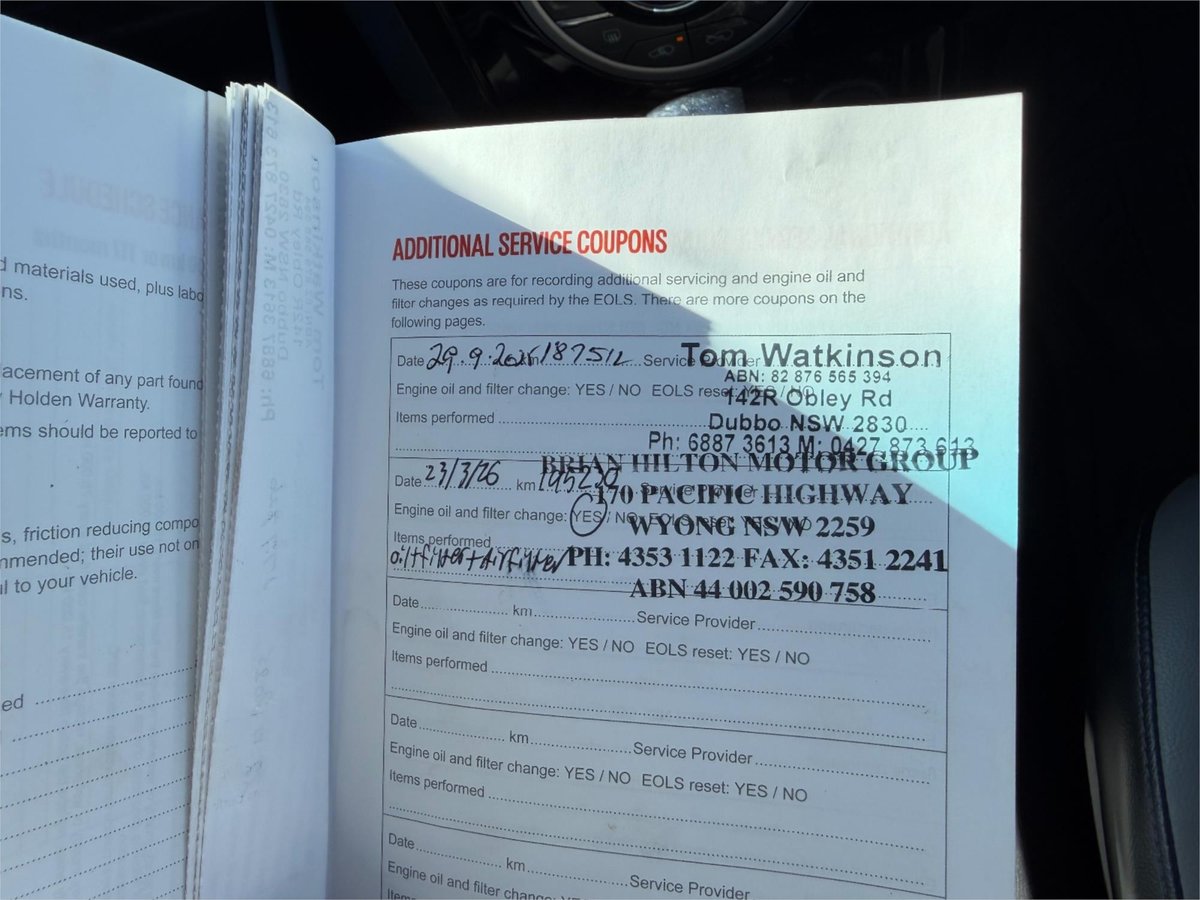 d materials used, plus labo
ns.
acement of any part found
Holden Warranty.
ems should be reported to
s, friction reducing compo
mmended; their use not on
l to your vehicle.
ed
ADDITIONAL SERVICE COUPONS
These coupons are for recording additional servicing and engine oil and
filter changes as required by the EOLS. There are more coupons on the
following pages.
Date 29.9.2025 km 187512 Service Tom Watkinson
ABN: 82 876 565 394
Engine oil and filter change: YES / NO EOLS reset: YES / NO
142R Obley Rd
Items performed
Dubbo NSW 2830
Ph: 6887 3613 M: 0427 873 613
BRIAN HILTON MOTOR GROUP
Date 23/3/26 km 195230 Service Provider
170 PACIFIC HIGHWAY
Engine oil and filter change: YES / NO EOLS reset: YES / NO
WYONG NSW 2259
Items performed
oil+filter+Airfilter PH: 4353 1122 FAX: 4351 2241
ABN 44 002 590 758
Date km Service Provider
Engine oil and filter change: YES / NO EOLS reset: YES / NO
Items performed
Date km Service Provider
Engine oil and filter change: YES / NO EOLS reset: YES / NO
Items performed
Date km Service Provider
Engine oil and filter change: YES / NO EOLS reset: YES / NO
Items performed